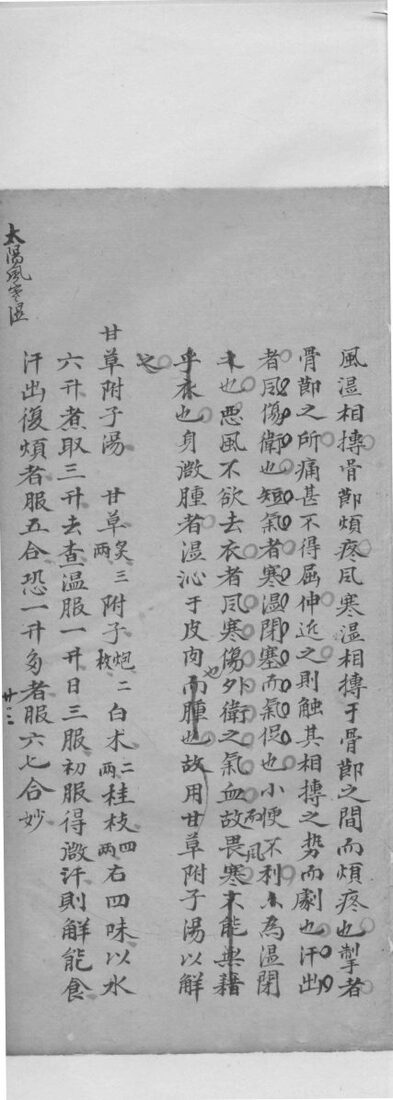 風湿相摶骨節煩疼風寒湿相摶于骨節之間而煩疼也掣者
骨節之所痛甚不得屈伸近之則触其相摶之势而劇也汗出
者風傷衛也短氣者寒湿閉塞而氣促也小便不利亦為湿閉
也惡風不欲去衣者風寒傷外衛之氣血故畏寒而風不能無藉
乎衣也身微腫者湿沁于皮肉而腫也也故用甘草附子湯以解
之
甘草附子湯 甘草炙三兩附子炮二枚白术二兩桂枝四兩右四味以水
六升煮取三升去查温服一升日三服初服得微汗則解能食
汗出復煩者服五合恐一升多者服六七合妙
太陽風寒湿